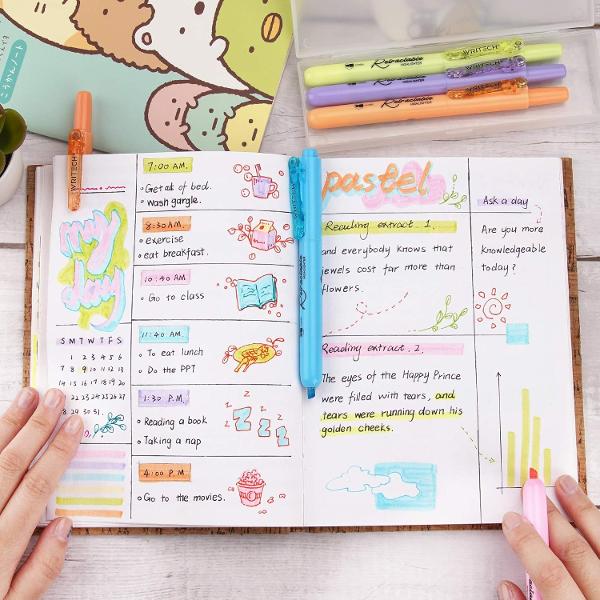 WRITECH
Retractable
HIGHLIGHTER
WRITECH
Retractable
HIGHLIGHTER
WRITECH
Retractable
HIGHLIGHTER
WRITECH
WRITECH
Retractable
my
day
S M T W T F S
1 2 3 4 5 6
7 8 9 10 11 12 13
14 15 16 17 18 19 20
21 22 23 24 25 26 27
28 29 30 31
7:00 AM.
Get out of bed.
wash gargle.
8:30 AM.
exercise
eat breakfast.
10:40 AM
Go to class
11:40 AM
To eat lunch
Do the PPT
1:30 P.M.
Reading a book
Taking a nap
z z z
Z Z Z
4:00 P.M
Go to the movies.
pastel
Reading extract 1.
and everybody knows that
jewels cost far more than
flowers.
Reading extract 2.
The eyes of the Happy Prince
were filled with tears, and
tears were running down his
golden cheeks.
Ask a day
Are you more
knowledgeable
today?